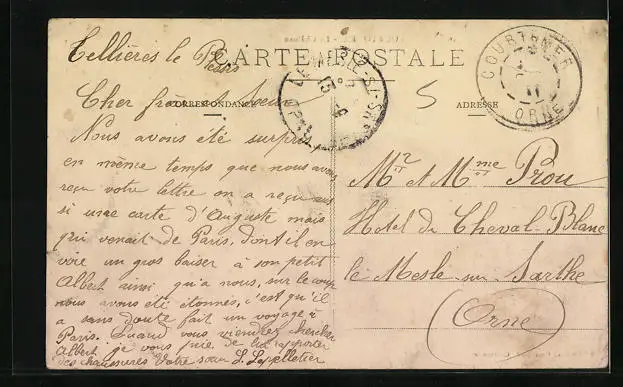 Tellières le Plessis
CARTE POSTALE
CORRESPONDANCE
ADRESSE
COURTOMER
ORNE
LE MELE-S-SARTHE
5
Cher frère et Sœur
Nous avons été surpris
en même temps que nous avons
reçu votre lettre on a reçu aussi
si une carte d'Auguste mais
qui venait de Paris, dont il en
voie un gros baiser à son petit
Albert ainsi qu'a nous, sur le coup
nous avons été étonnés, c'est qu'il
a sans doute fait un voyage à
Paris. Quand vous viendrez chercher
Albert je vous prie de lui rapporter
des chaussures Votre sœur L. Lepelletier
Mr et Mme Prou
Hotel du Cheval-Blanc
le Mesle sur Sarthe
Orne